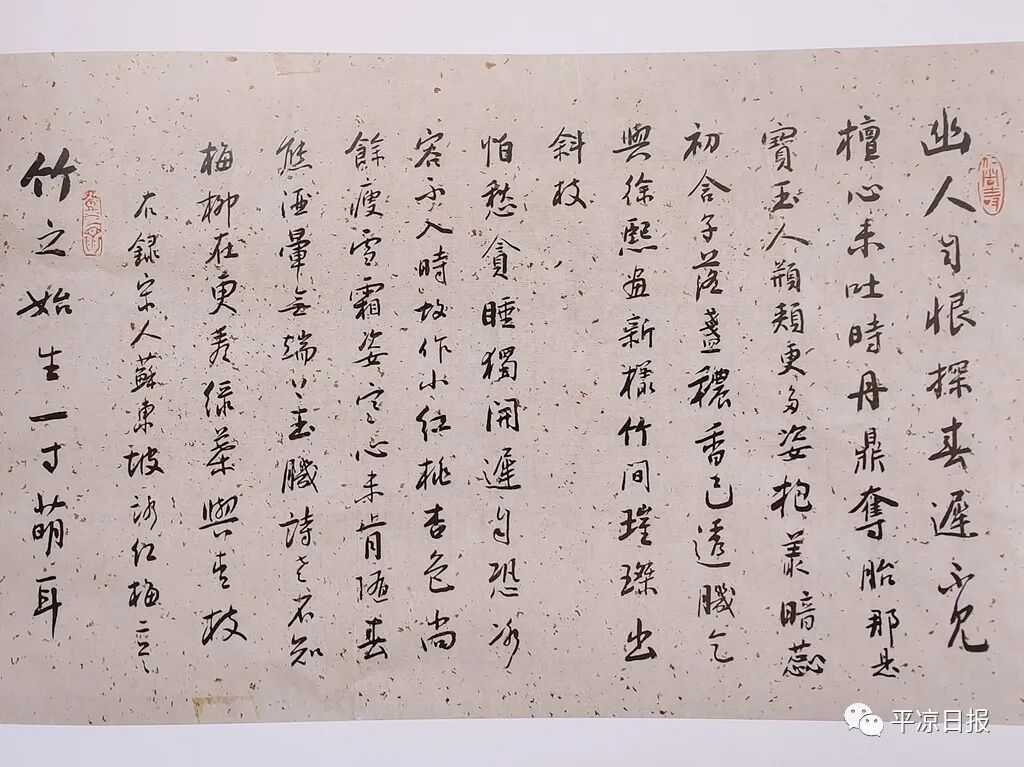 幽人自恨探春遲不見
檀心未吐時丹鼎奪胎那是
寶玉人頩頰更多姿抱叢暗蕊
初含子落盞穠香已透肌乞
與徐熙畫新樣竹間璀璨出
斜枝
怕愁貪睡獨開遲自恐冰
容不入時故作小红桃杏色尚
餘瘦雪霜姿寒心未肯随春
態酒暈無端上玉肌詩老不知
梅格在更看绿葉與青枝
右錄宋人蘇東坡詠红梅
竹之始生一寸萌耳
平凉日报